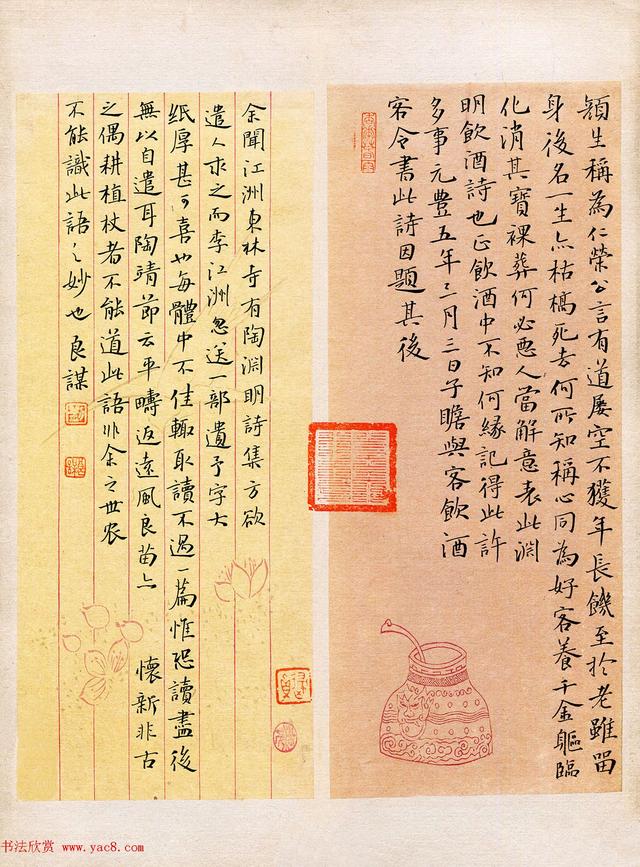 顔生稱為仁榮公言有道屢空不獲年長饑至於老雖留
身後名一生亦枯槁死去何所知稱心同為好客養千金軀臨
化消其寶裸葬何必惡人當解意表此淵
明飲酒詩也正飲酒中不知何緣記得此許
多事元豐五年三月三日子瞻與客飲酒
客令書此詩因題其後
余聞江洲東林寺有陶淵明詩集方欲
遣人求之而李江洲忽送一部遺予字大
紙厚甚可喜也每體中不佳輒取讀不過一篇惟恐讀盡後
無以自遣耳陶靖節云平疇返遠風良苗亦懷新非古
之偶耕植杖者不能道此語非余之世農
不能識此語之妙也良謀
书法欣赏 www.yac8.com